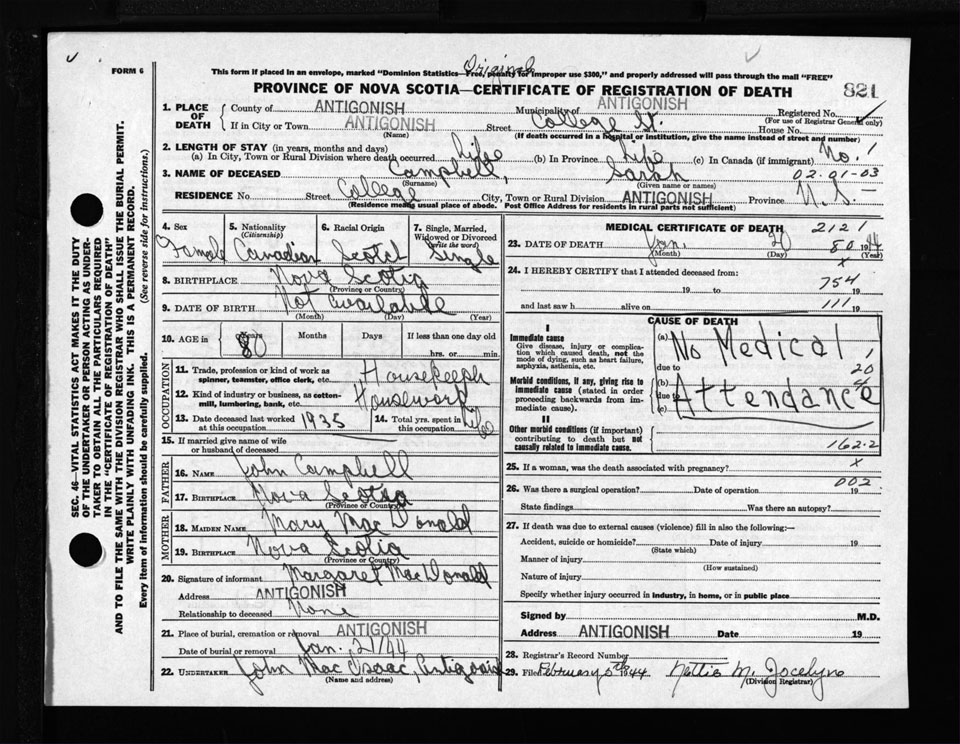 Original
FORM 6
This form if placed in an envelope, marked "Dominion Statistics—Free, penalty for improper use $300," and properly addressed will pass through the mail "FREE"
PROVINCE OF NOVA SCOTIA—CERTIFICATE OF REGISTRATION OF DEATH
821
1. PLACE OF DEATH
County of ANTIGONISH Municipality of ANTIGONISH Registered No.
(For use of Registrar General only)
If in City or Town ANTIGONISH Street College St. House No.
(Name) (If death occurred in a hospital or institution, give the name instead of street and number)
2. LENGTH OF STAY (in years, months and days)
(a) In City, Town or Rural Division where death occurred life (b) In Province Life (c) In Canada (if immigrant) No. 1
3. NAME OF DECEASED Campbell, Sarah 02-01-03
(Surname) (Given name or names)
RESIDENCE No. Street College City, Town or Rural Division ANTIGONISH Province N.S.
(Residence means usual place of abode. Post Office Address for residents in rural parts not sufficient)
4. Sex Female
5. Nationality (Citizenship) Canadian
6. Racial Origin Scotch
7. Single, Married, Widowed or Divorced (write the word) Single
8. BIRTHPLACE Nova Scotia
(Province or Country)
9. DATE OF BIRTH Not available
(Month) (Day) (Year)
10. AGE in Years 80 Months Days If less than one day old
hrs. or min.
OCCUPATION
11. Trade, profession or kind of work as spinner, teamster, office clerk, etc. Housekeeper
12. Kind of industry or business, as cotton-mill, lumbering, bank, etc. Housework
13. Date deceased last worked at this occupation 1935
14. Total yrs. spent in this occupation life
15. If married give name of wife or husband of deceased
FATHER
16. NAME John Campbell
17. BIRTHPLACE Nova Scotia
MOTHER
18. MAIDEN NAME Mary MacDonald
19. BIRTHPLACE Nova Scotia
(Province or Country)
20. Signature of informant Margaret MacDonald
Address ANTIGONISH
Relationship to deceased None
21. Place of burial, cremation or removal ANTIGONISH
Date of burial or removal Jan. 21/44
22. UNDERTAKER John MacIsaac, Antigonish
(Name and address)
MEDICAL CERTIFICATE OF DEATH 2121
23. DATE OF DEATH Jan. 20 1944
(Month) (Day) (Year)
80
x
24. I HEREBY CERTIFY that I attended deceased from:
754
19 to 19
111
and last saw h alive on 19
CAUSE OF DEATH
I
Immediate cause
Give disease, injury or complication which caused death, not the mode of dying, such as heart failure, asphyxia, asthenia, etc.
(a) No Medical
due to
20
Morbid conditions, if any, giving rise to immediate cause (stated in order proceeding backwards from immediate cause).
(b)
due to Attendance
(c)
II
Other morbid conditions (if important) contributing to death but not causally related to immediate cause.
162.2
25. If a woman, was the death associated with pregnancy? x
002
26. Was there a surgical operation? Date of operation 19
State findings Was there an autopsy?
27. If death was due to external causes (violence) fill in also the following:—
Accident, suicide or homicide? Date of injury 19
(State which)
Manner of injury
(How sustained)
Nature of injury
Specify whether injury occurred in industry, in home, or in public place
Signed by M.D.
Address ANTIGONISH Date 19
28. Registrar's Record Number
29. Filed February 5th 1944 Nettie M. Jocelyn
(Division Registrar)
SEC. 46—VITAL STATISTICS ACT MAKES IT THE DUTY
OF THE UNDERTAKER OR PERSON ACTING AS UNDER-
TAKER TO OBTAIN ALL THE PARTICULARS REQUIRED
IN THE "CERTIFICATE OF REGISTRATION OF DEATH"
AND TO FILE THE SAME WITH THE DIVISION REGISTRAR WHO SHALL ISSUE THE BURIAL PERMIT.
WRITE PLAINLY WITH UNFADING INK. THIS IS A PERMANENT RECORD.
Every item of information should be carefully supplied. (See reverse side for instructions.)